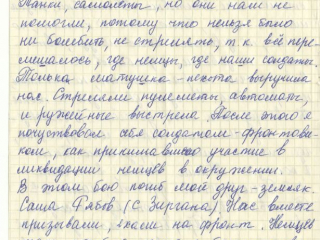 танки, самолёты, но они нам не
помогли, потому что нельзя было
ни бомбить, не стрелять, т.к. всё пере-
мешалось, где немцы, где наши солдаты.
Только матушка-пехота выручила
нас. Стреляли пулеметы, автоматы,
и ружейные выстрела. После этого я
почувствовал себя солдатом-фронтови-
ком, как принимавшего участие в
ликвидации немцев в окружении.
В этом бою погиб мой друг-земляк.
Саша Глебов (с. Зиргана) Нас вместе
призывали, ехали на фронт. Немцев